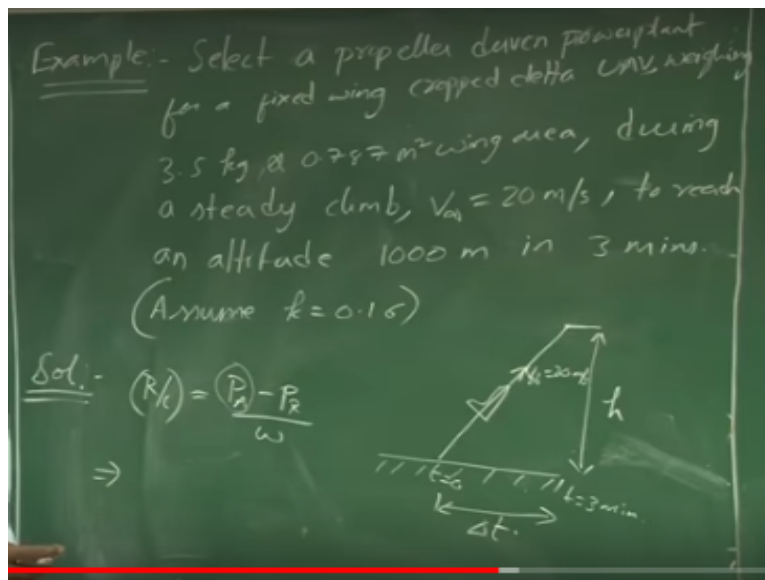 Example:- Select a propeller driven powerplant
for a fixed wing cropped delta UAV, weighing
3.5 kg, & 0.787 m² wing area, during
a steady climb, V∞ = 20 m/s, to reach
an altitude 1000 m in 3 mins.
(Assume k = 0.16)
Sol:- (R/c) = (PA - PR)/W
⇒
V∞ = 20 m/s
h
t=0
t=3min.
Δt.